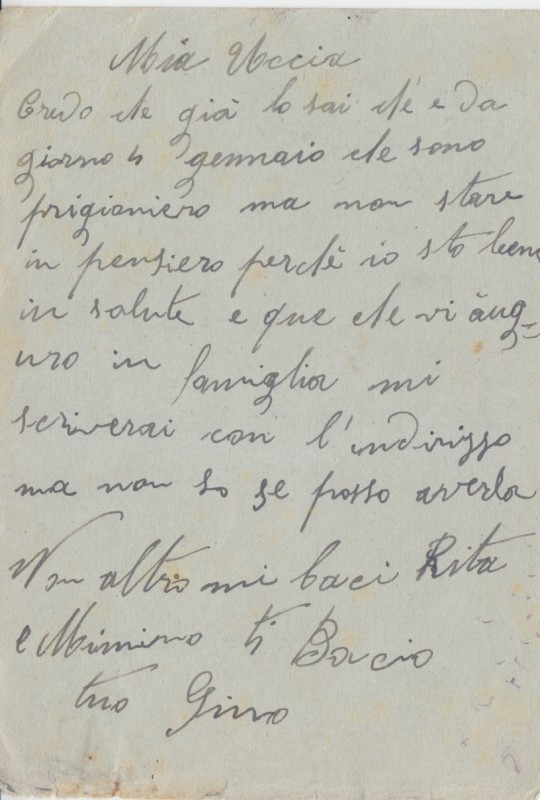 Mia Uccia
Credo che già lo sai ch'è e da
giorno 4 gennaio che sono
prigioniero ma non stare
in pensiero perchè io sto bene
in salute e que che vi àug-
uro in famiglia mi
scriverai con l'indirizzo
ma non so se posso averla
Non altro mi baci Rita
e Mimino ti Bacio
tuo Gino